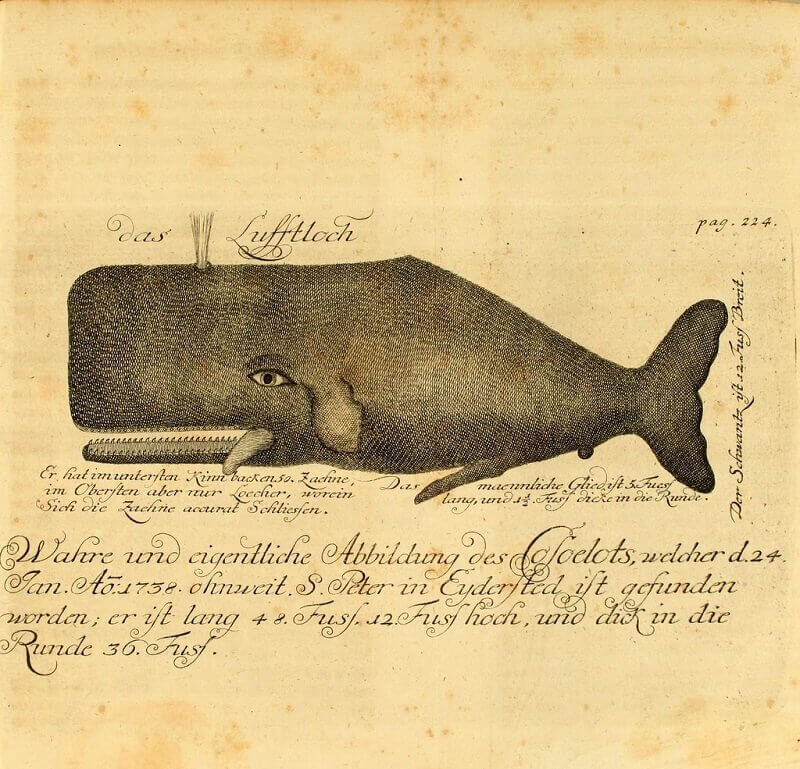 das Lufftloch
pag. 224.
Der Schwantz ist 12. Fuss Breit.
Er hat im untersten Kinn backen 50. Zaehne,
im Obersten aber nur Loecher, worein
Sich die Zaehne accurat Schliessen.
Das maennliche Glied ist 3. Fuess
lang, und 1½. Fuss dicke in die Runde.
Wahre und eigentliche Abbildung des welcher d. 24.
Jan. Ao. 1738. ohnweit. S. Peter in Eydersted ist gefunden
worden; er ist lang 48. Fuss. 12. Fuss hoch, und dick in die
Runde 36. Fuss.